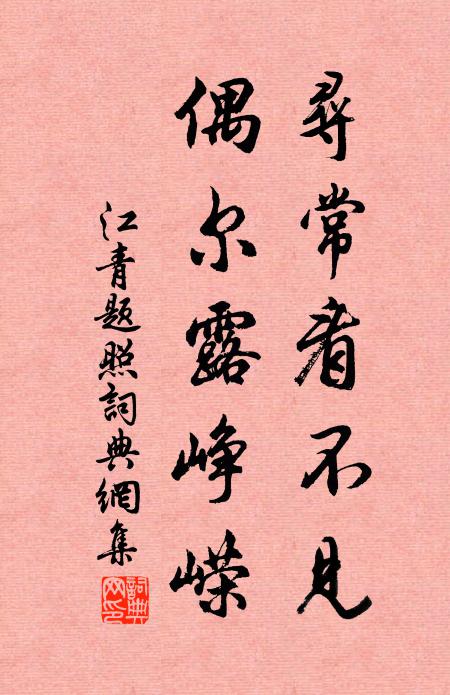 尋常看不見
偶尔露峥嵘
江青題照詞典網集
詞典网印